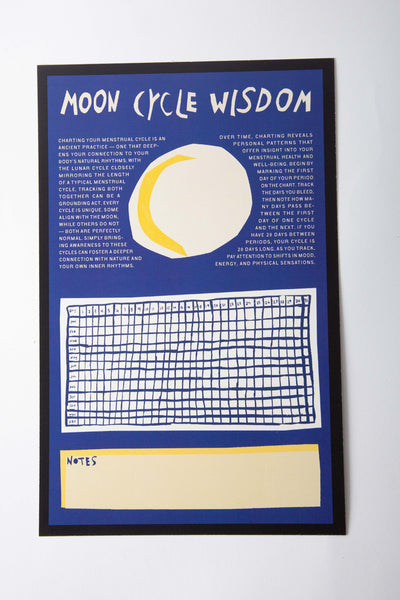 MOON CYCLE WISDOM
CHARTING YOUR MENSTRUAL CYCLE IS AN
ANCIENT PRACTICE — ONE THAT DEEP-
ENS YOUR CONNECTION TO YOUR
BODY'S NATURAL RHYTHMS. WITH
THE LUNAR CYCLE CLOSELY
MIRRORING THE LENGTH
OF A TYPICAL MENSTRUAL
CYCLE, TRACKING BOTH
TOGETHER CAN BE A
GROUNDING ACT. EVERY
CYCLE IS UNIQUE. SOME
ALIGN WITH THE MOON,
WHILE OTHERS DO NOT
— BOTH ARE PERFECTLY
NORMAL. SIMPLY BRING-
ING AWARENESS TO THESE
CYCLES CAN FOSTER A DEEPER
CONNECTION WITH NATURE AND
YOUR OWN INNER RHYTHMS.
OVER TIME, CHARTING REVEALS
PERSONAL PATTERNS THAT
OFFER INSIGHT INTO YOUR
MENSTRUAL HEALTH AND
WELL-BEING. BEGIN BY
MARKING THE FIRST
DAY OF YOUR PERIOD
ON THE CHART. TRACK
THE DAYS YOU BLEED,
THEN NOTE HOW MA-
NY DAYS PASS BE-
TWEEN THE FIRST
DAY OF ONE CYCLE
AND THE NEXT. IF YOU
HAVE 29 DAYS BETWEEN
PERIODS, YOUR CYCLE IS
29 DAYS LONG. AS YOU TRACK,
PAY ATTENTION TO SHIFTS IN MOOD,
ENERGY, AND PHYSICAL SENSATIONS.
NOTES